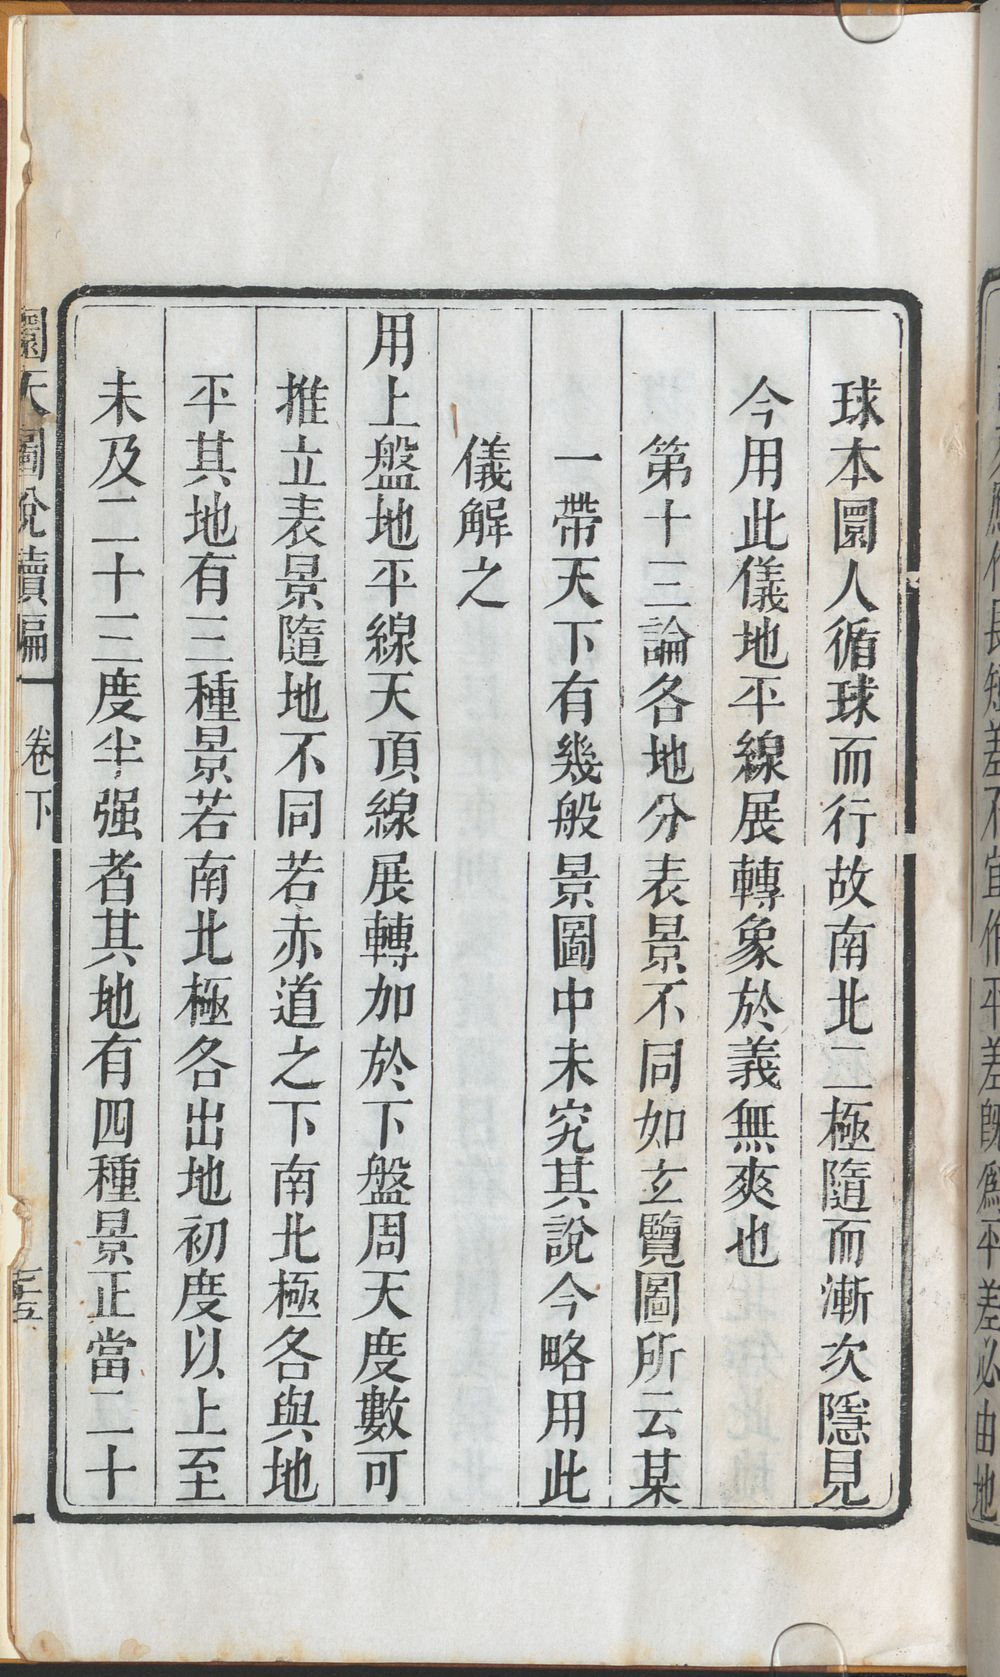 球本圜人循球而行故南北二極隨而漸次隱見
今用此儀地平線展轉象於義無爽也
第十三論各地分表景不同如玄覽圖所云某
一帶天下有幾般景圖中未究其說今略用此
儀解之
用上盤地平線天頂線展轉加於下盤周天度數可
推立表景隨地不同若赤道之下南北極各與地
平其地有三種景若南北極各出地初度以上至
未及二十三度半强者其地有四種景正當二十
圖說續編
卷下
長短差不宜作平差旣爲平差必由地